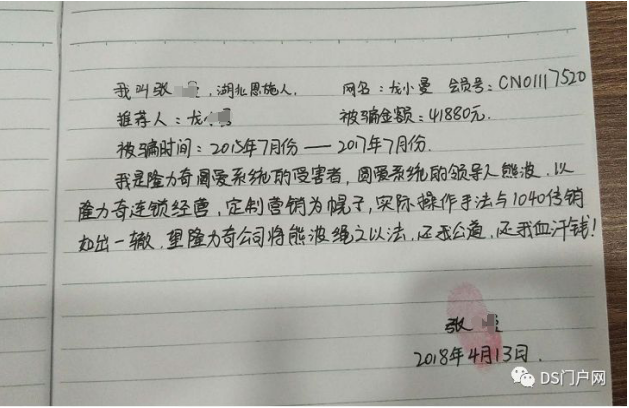 我叫张 , 湖北恩施人. 网名: 龙小曼 会员号: CN01117520
推荐人: 龙小 被骗金额: 41880元.
被骗时间: 2015年7月份——2017年7月份.
我是隆力奇圆爱系统的受害者, 圆爱系统的领导人熊波, 以
隆力奇连锁经营, 定制营销为幌子, 实际操作手法与1040传销
如出一辙, 望隆力奇公司将熊波绳之以法, 还我公道, 还我血汗钱!
张
2018年4月13日.
DS门户网